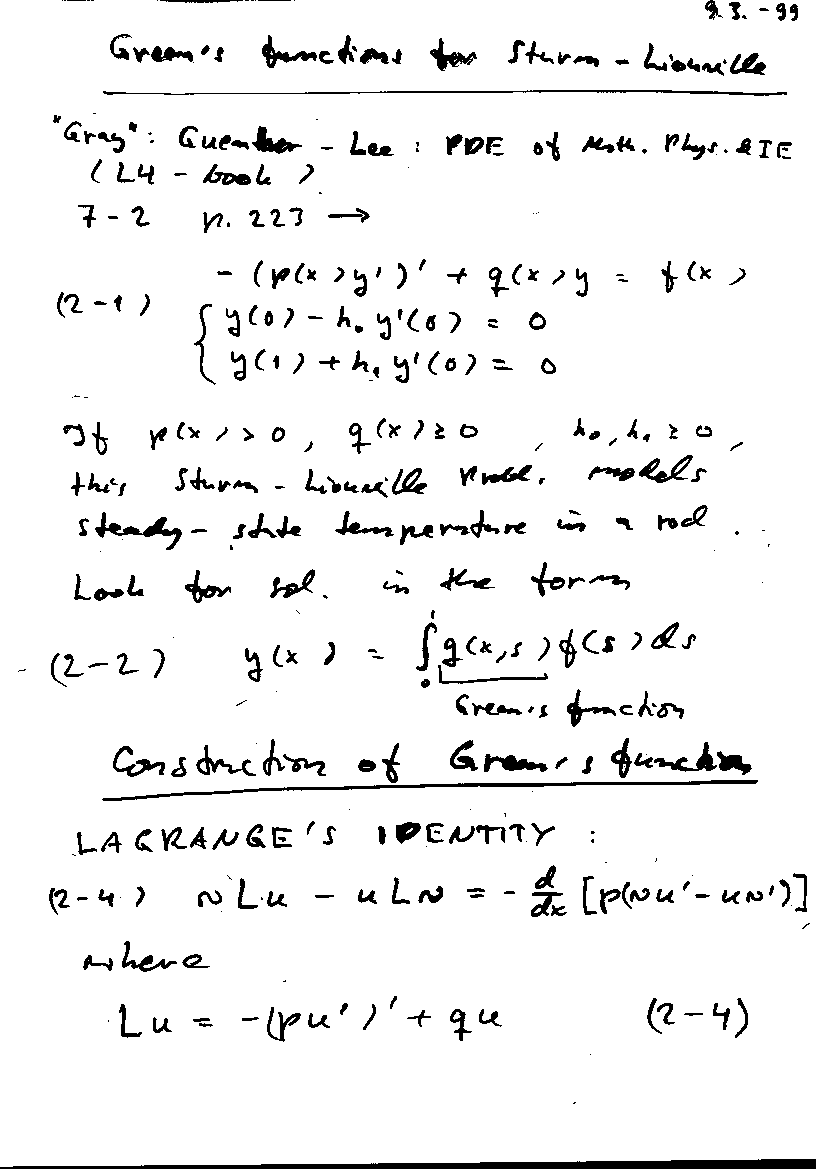 9.3.-99
Green's functions for Sturm-Liouville
"Gray": Guenther - Lee: PDE of Math. Phys. & IE
(L4 - book)
7-2 p. 223 →
- (p(x)y')' + q(x)y = f(x)
(2-1) { y(0) - h₀ y'(0) = 0
y(1) + h₁ y'(0) = 0
If p(x) > 0, q(x) ≥ 0, h₀, h₁ ≥ 0,
this Sturm-Liouville Probl. models
steady-state temperature in a rod.
Look for sol. in the form
(2-2) y(x) = ∫₀¹ g(x,s) f(s) ds
Green's function
Construction of Green's function
LAGRANGE'S IDENTITY:
(2-4) v Lu - u Lv = - d/dx [p(vu' - uv')]
where
Lu = -(pu')' + qu (2-4)